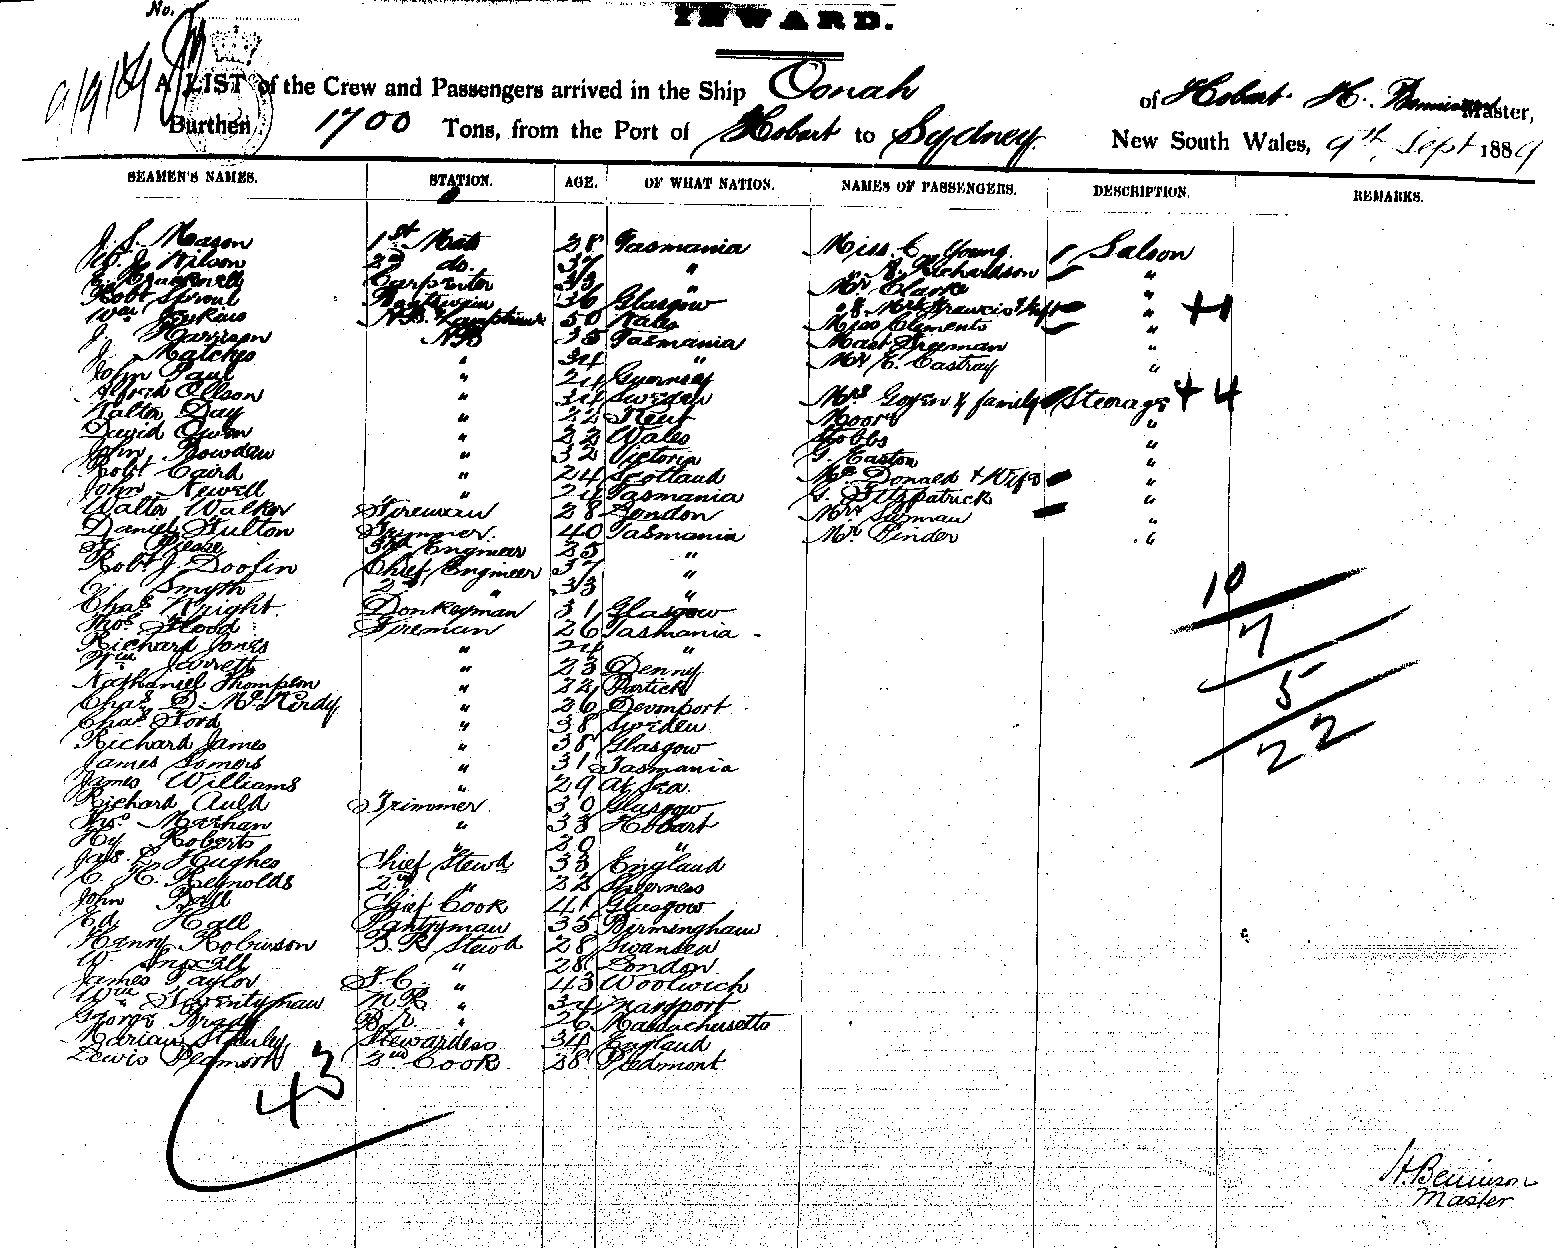 No.
INWARD.
9/9/89
A LIST of the Crew and Passengers arrived in the Ship Oonah of Hobart H. Bennison Master,
Burthen 1700 Tons, from the Port of Hobart to Sydney New South Wales, 9th Sept 1889
SEAMEN'S NAMES. STATION. AGE. OF WHAT NATION. NAMES OF PASSENGERS. DESCRIPTION. REMARKS.
J. S. Mason 1st Mate 38 Tasmania Miss C. Young 1 Saloon
Wilson 2nd do. 37 " " Richardson "
Carpenter 33 " Mr Clarke "
Robt Sproul Boatswain 36 Glasgow Francis & Wife " + 1
Wm Jenkins A.B. Lamptrimmer 50 Wales Miss Clements "
J. Harrison AB 35 Tasmania Mast Freeman "
J. Matches " 34 " Mr C. Eastray "
John Paul " 24 Guernsey
Alfred Ellson " 34 Sweden Mrs Goyen & family Steerage + 4
Walter Day " 22 Kent Moore "
David Owen " 22 Wales Hobbs "
John Bowden " 32 Victoria G. Easton "
Robt Caird " 24 Scotland McDonald + Wife "
John Newell " 24 Tasmania G. Fitzpatrick "
Walter Walker Fireman 28 London Mrs "
Daniel Fulton Trimmer 40 Tasmania Mr Pinder "
3rd Engineer 25 "
Robt J. Doolin Chief Engineer 37 "
Smyth 2nd " 33 "
Chas Wright Donkeyman 31 Glasgow
Thos Flood Fireman 26 Tasmania
Richard Jones " 24 "
Wm Jerrett " 23 Denny
Nathaniel Thompson " 22 Partick
Chas D. McKirdy " 26 Devonport
Chas Ford " 38 Sweden
Richard James " 38 Glasgow
James Somers " 31 Tasmania
James Williams " 29 At Sea
Richard Auld Trimmer 30 Glasgow
Thos Meehan " 38 Hobart
Hy Roberts " 20 "
Jas. E. Hughes Chief Stewd 33 England
C. H. Reynolds 2nd " 22 Inverness
John Ball Chief Cook 41 Glasgow
Ed. Hall Pantryman 35 Birmingham
Henry Robinson B. R. Stewd 28 Swansea
W. " 28 London
James Taylor F. C. " 43 Woolwich
Wm Twentyman M. R. " 34 Maryport
George Brady B/r " 26 Massachusetts
Marian Stanley Stewardess 34 England
Lewis 2nd Cook 28 Piedmont
43
10
7
5
22
H. Bennison
Master